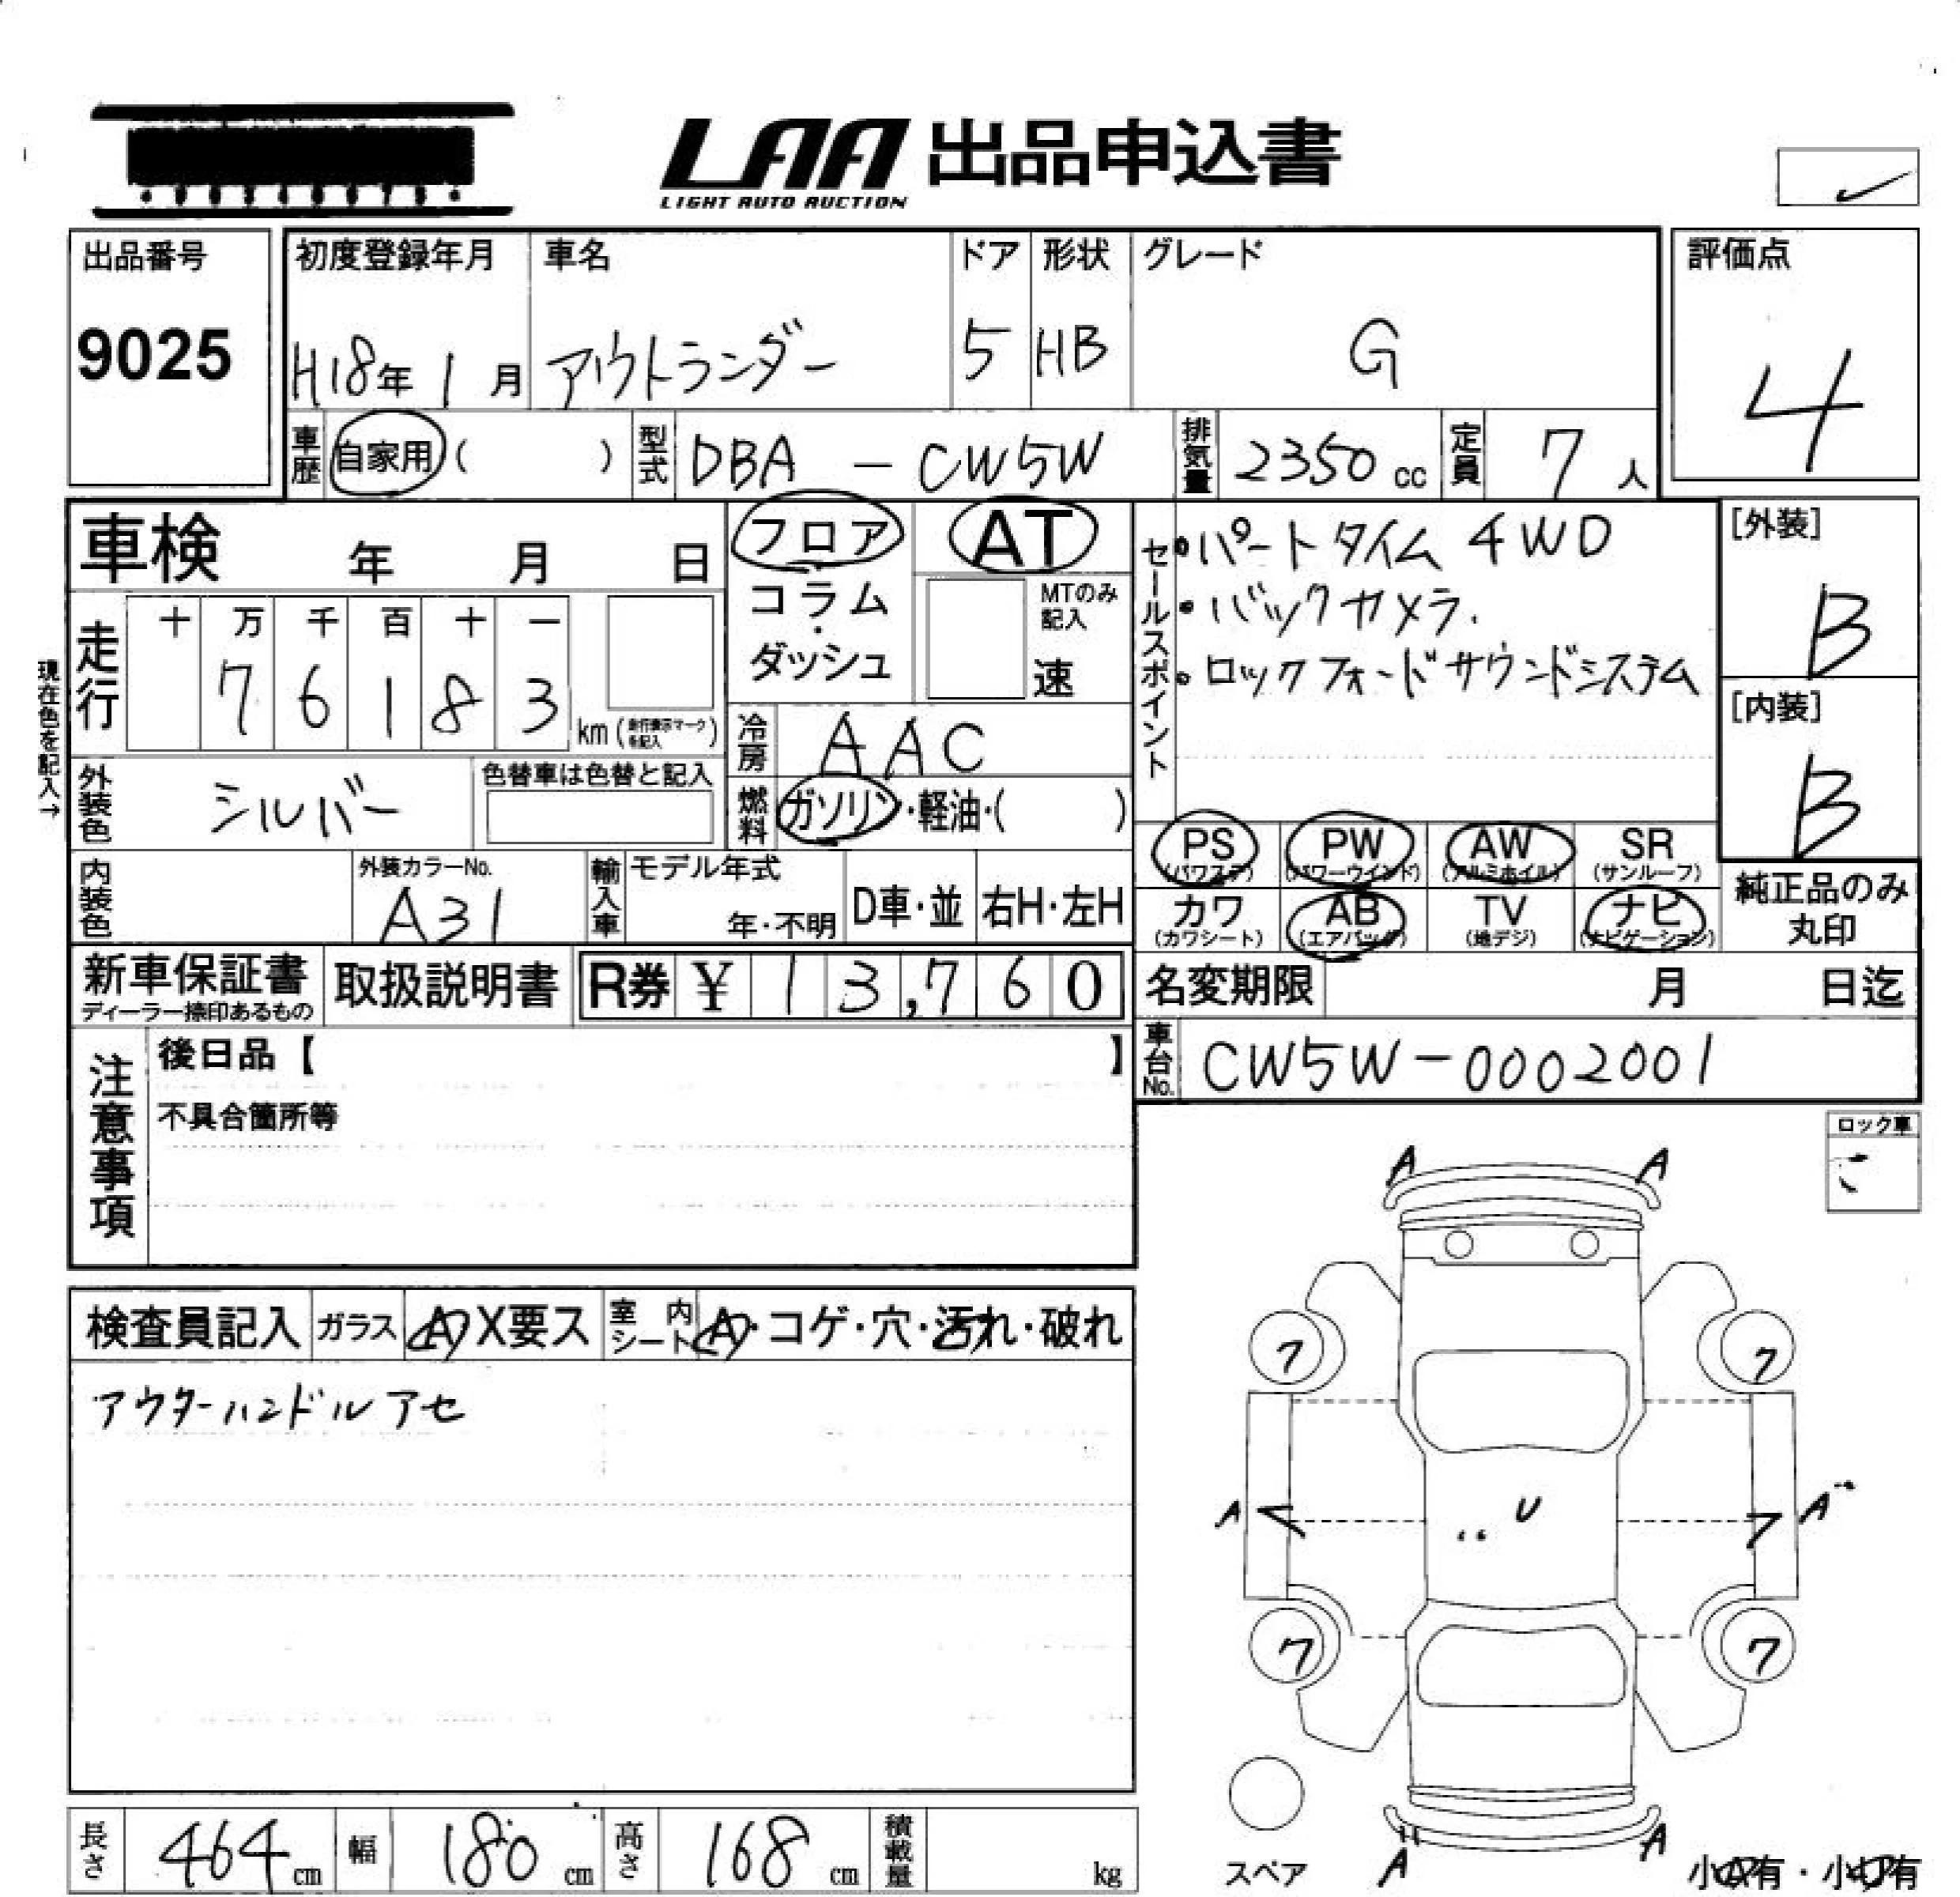 LAA 出品申込書
LIGHT AUTO AUCTION
出品番号
9025
初度登録年月
H18年 1月
車名
アウトランダー
ドア
5
形状
HB
グレード
G
評価点
4
車歴 自家用 ( )
型式 DBA - CW5W
排気量 2350 cc
定員 7 人
車検 年 月 日
フロア
コラム・
ダッシュ
AT
MTのみ記入
速
セールスポイント
・パートタイム 4WD
・バックカメラ.
・ロックフォードサウンドシステム
[外装]
B
[内装]
B
現在色を記入→
走行
十 万 千 百 十 一
7 6 1 8 3 km (走行表示マークを記入)
冷房 AAC
外装色 シルバー
色替車は色替と記入
燃料 ガソリン・軽油・( )
PS (パワステ)
PW (パワーウインド)
AW (アルミホイル)
SR (サンルーフ)
カワ (カワシート)
AB (エアバッグ)
TV (地デジ)
ナビ (ナビゲーション)
純正品のみ
丸印
内装色
外装カラーNo.
A31
輸入車
モデル年式
年・不明
D車・並
右H・左H
新車保証書
ディーラー捺印あるもの
取扱説明書
R券 ¥ 13,760
名変期限 月 日迄
車台No. CW5W-0002001
注意事項
後日品【 】
不具合箇所等
ロック車
検査員記入
ガラス A X要ス
室内シート A・コゲ・穴・汚れ・破れ
アウターハンドルアセ
A A
7 7
A U A
7 7
A A
スペア
長さ 464 cm
幅 180 cm
高さ 168 cm
積載量 kg